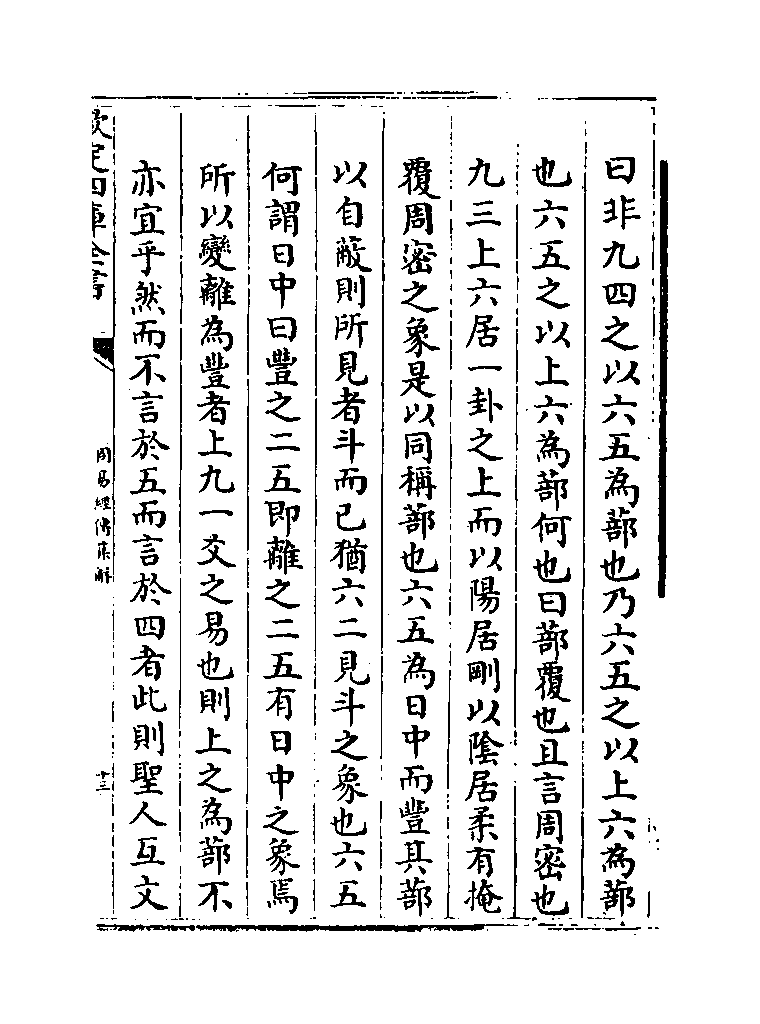 曰非九四之以六五為蔀也乃六五之以上六為蔀
也六五之以上六為蔀何也曰蔀覆也且言周密也
九三上六居一卦之上而以陽居剛以陰居柔有掩
覆周密之象是以同稱蔀也六五為日中而豐其蔀
以自蔽則所見者斗而已猶六二見斗之象也六五
何謂日中曰豐之二五即離之二五有日中之象焉
所以變離為豐者上九一爻之易也則上之為蔀不
亦宜乎然而不言於五而言於四者此則聖人互文
欽定四庫全書
周易經傳集解
十三